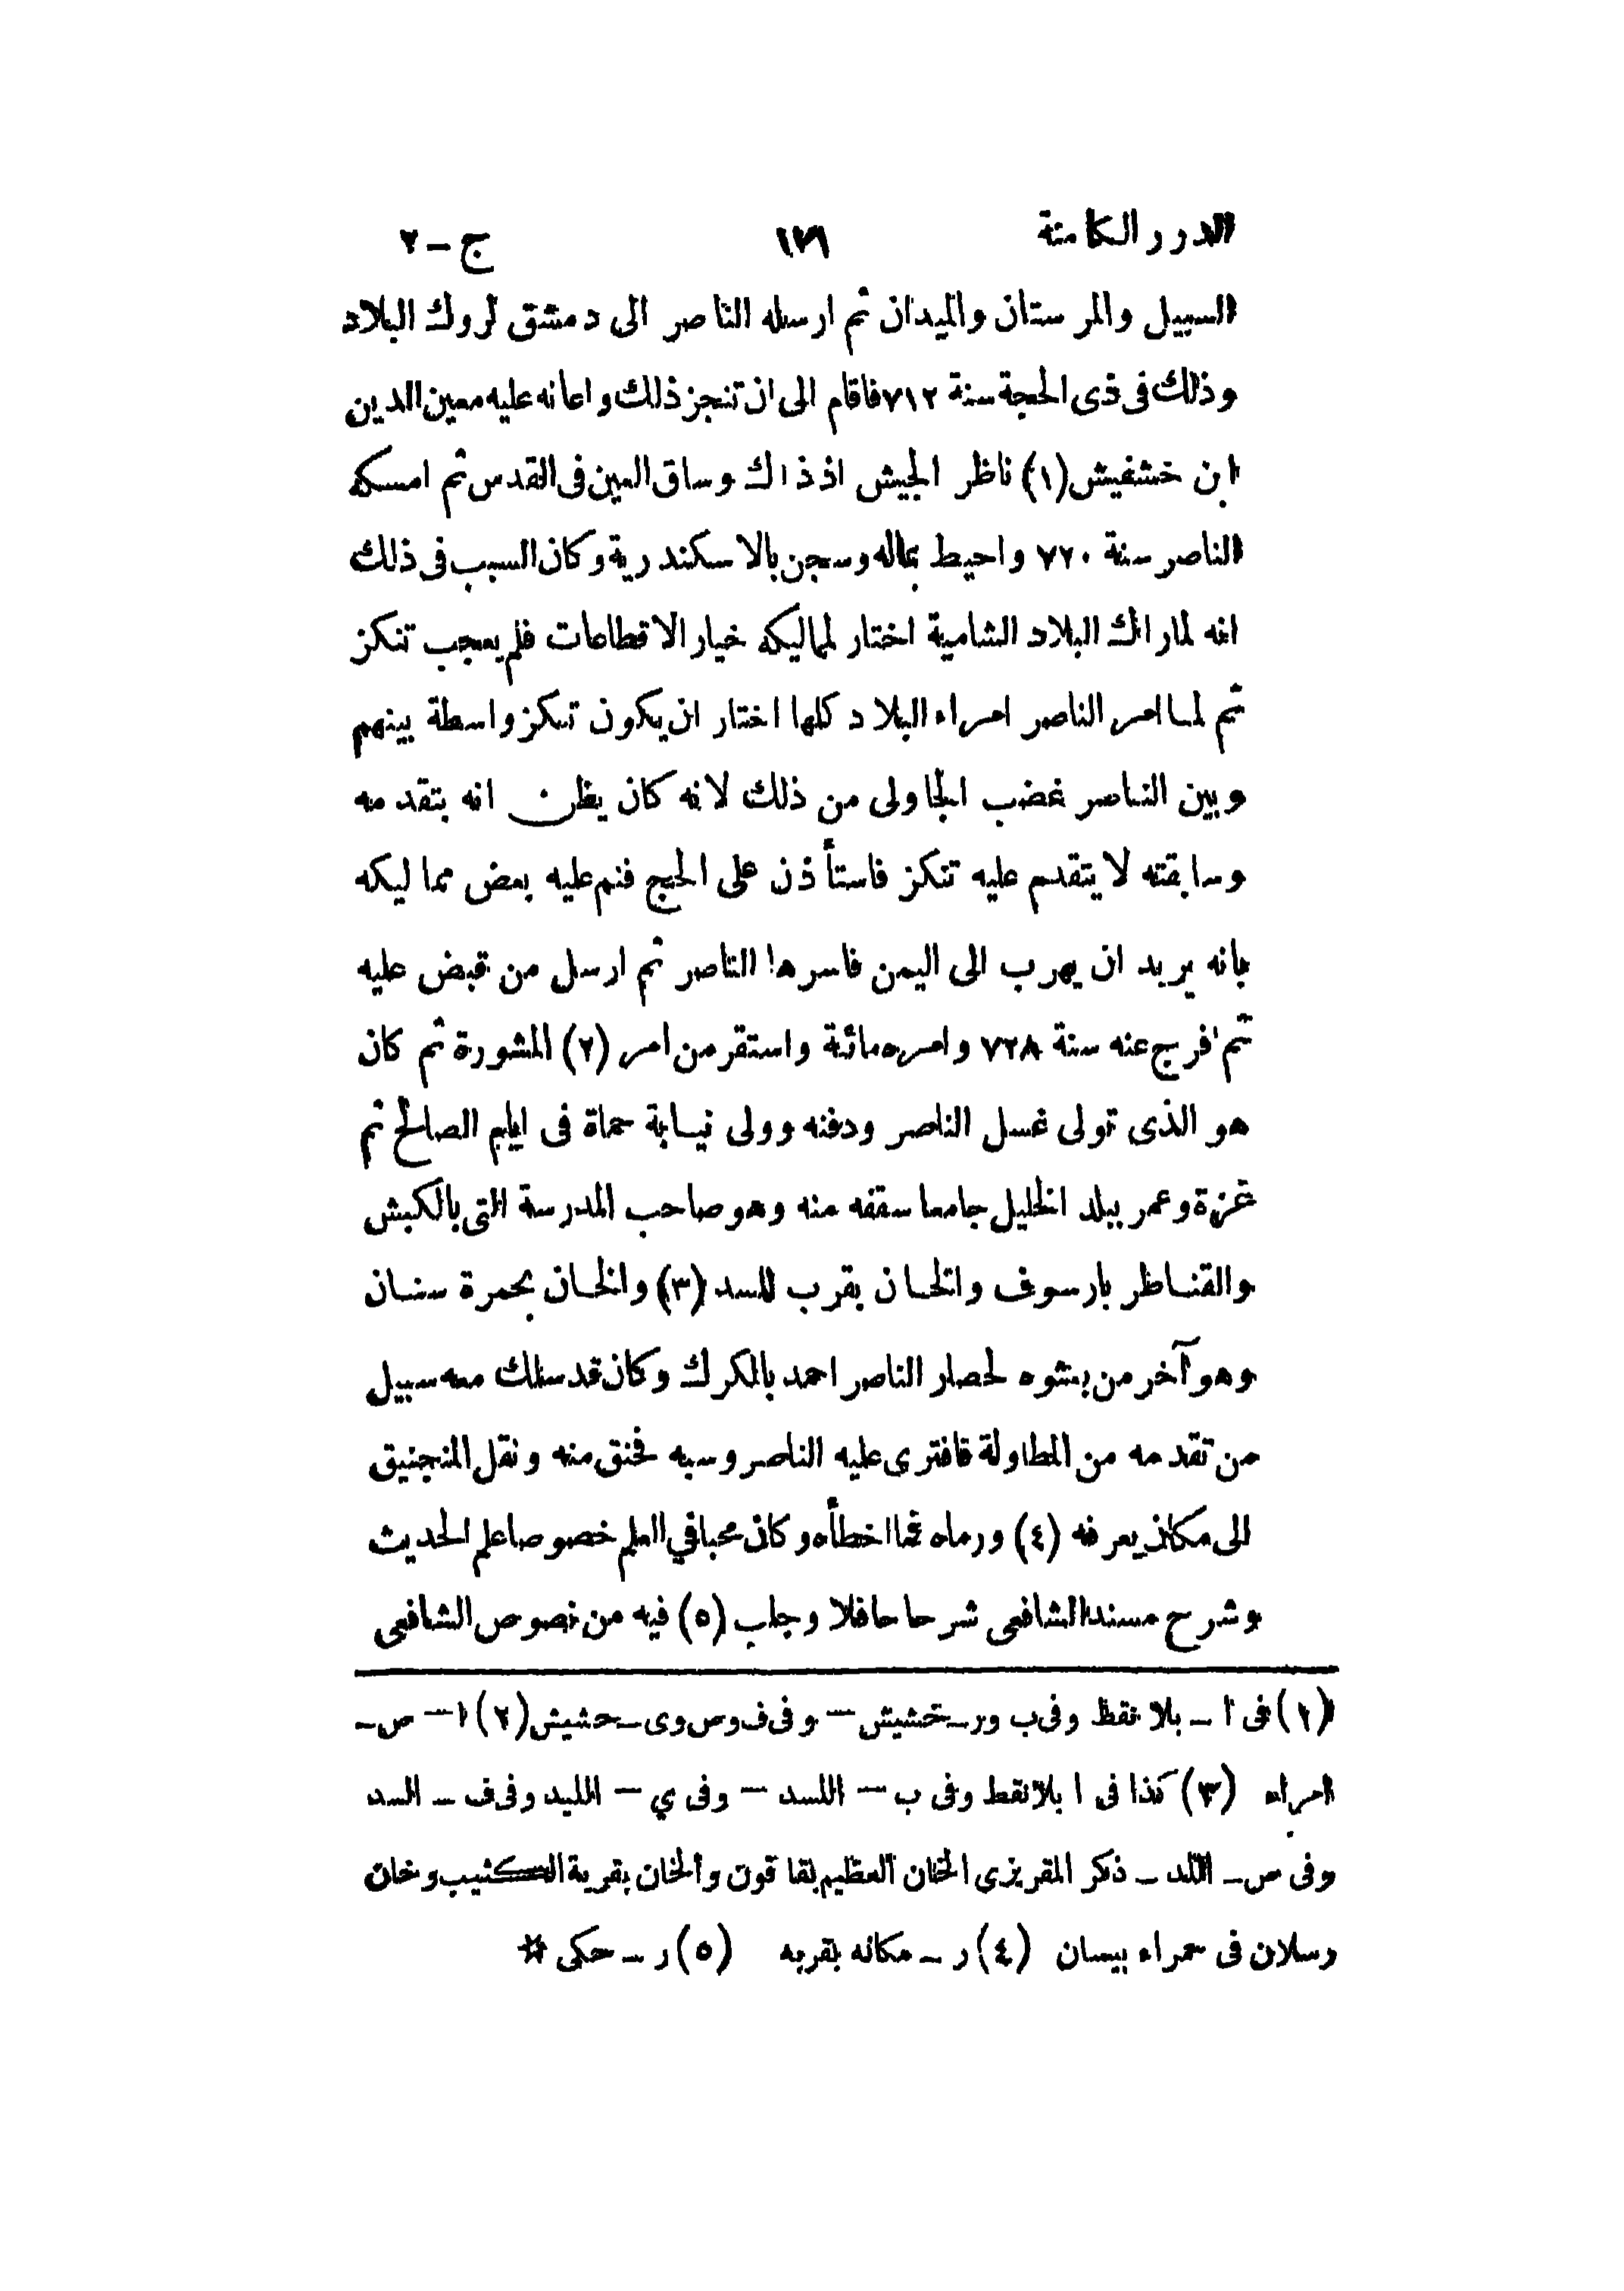 الدرر الكامنة ١٧١ ج - ٢
السبيل والمرستان والميدان ثم ارسله الناصر الى دمشق لروك البلاد
وذلك فى ذى الحجة سنة ٧١٢ فاقام الى ان تنجز ذلك واعانه عليه معين الدين
ابن خشفيش (١) ناظر الجيش اذ ذاك وساق العين فى القدس ثم امسكه
الناصر سنة ٧٢٠ واحيط بماله وسجن بالاسكندرية وكان السبب فى ذلك
انه لما راك البلاد الشامية اختار لمماليكه خيار الاقطاعات فلم يعجب تنكز
ثم لما امر الناصر امراء البلاد كلها اختار ان يكون تنكز واسطة بينهم
وبين الناصر غضب الجاولى من ذلك لانه كان يظن انه بتقدمه
وسابقته لا يتقدم عليه تنكز فاستأذن على الحج فنم عليه بعض مماليكه
بانه يريد ان يهرب الى اليمن فاسرها الناصر ثم ارسل من قبض عليه
ثم افرج عنه سنة ٧٢٨ وامره مائة واستقر من امر (٢) المشورة ثم كان
هو الذى تولى غسل الناصر ودفنه وولى نيابة حماة فى ايام الصالح ثم
غزة وعمر ببلد الخليل جامعا سقفه منه وهو صاحب المدرسة التى بالكبش
والقناطر بارسوف والخان بقرب للسد (٣) والخان بحمرة سنان
وهو آخر من بعثوه لحصار الناصر احمد بالكرك وكان قد سلك معه سبيل
من تقدمه من المطاولة فافترى عليه الناصر وسبه فحنق منه ونقل المنجنيق
الى مكان يعرفه (٤) ورماه فما اخطأه وكان محبا في العلم خصوصا علم الحديث
وشرح مسند الشافعى شرحا حافلا وجلب (٥) فيه من نصوص الشافعى
(١) فى ا - بلا نقط وفى ب ور - خشيش - وفى ف وص وى - حشيش (٢) ا - ص -
امراء (٣) كذا فى ا بلا نقط وفى ب - اللسد - وفى ي - الليد وفى ف - السد
وفى ص - اللد - ذكر المقريزى الخان العظيم بقاقون والخان بقرية الكثيب وخان
رسلان فى حمراء بيسان (٤) ر - مكانه بقربه (٥) ر - حكى *